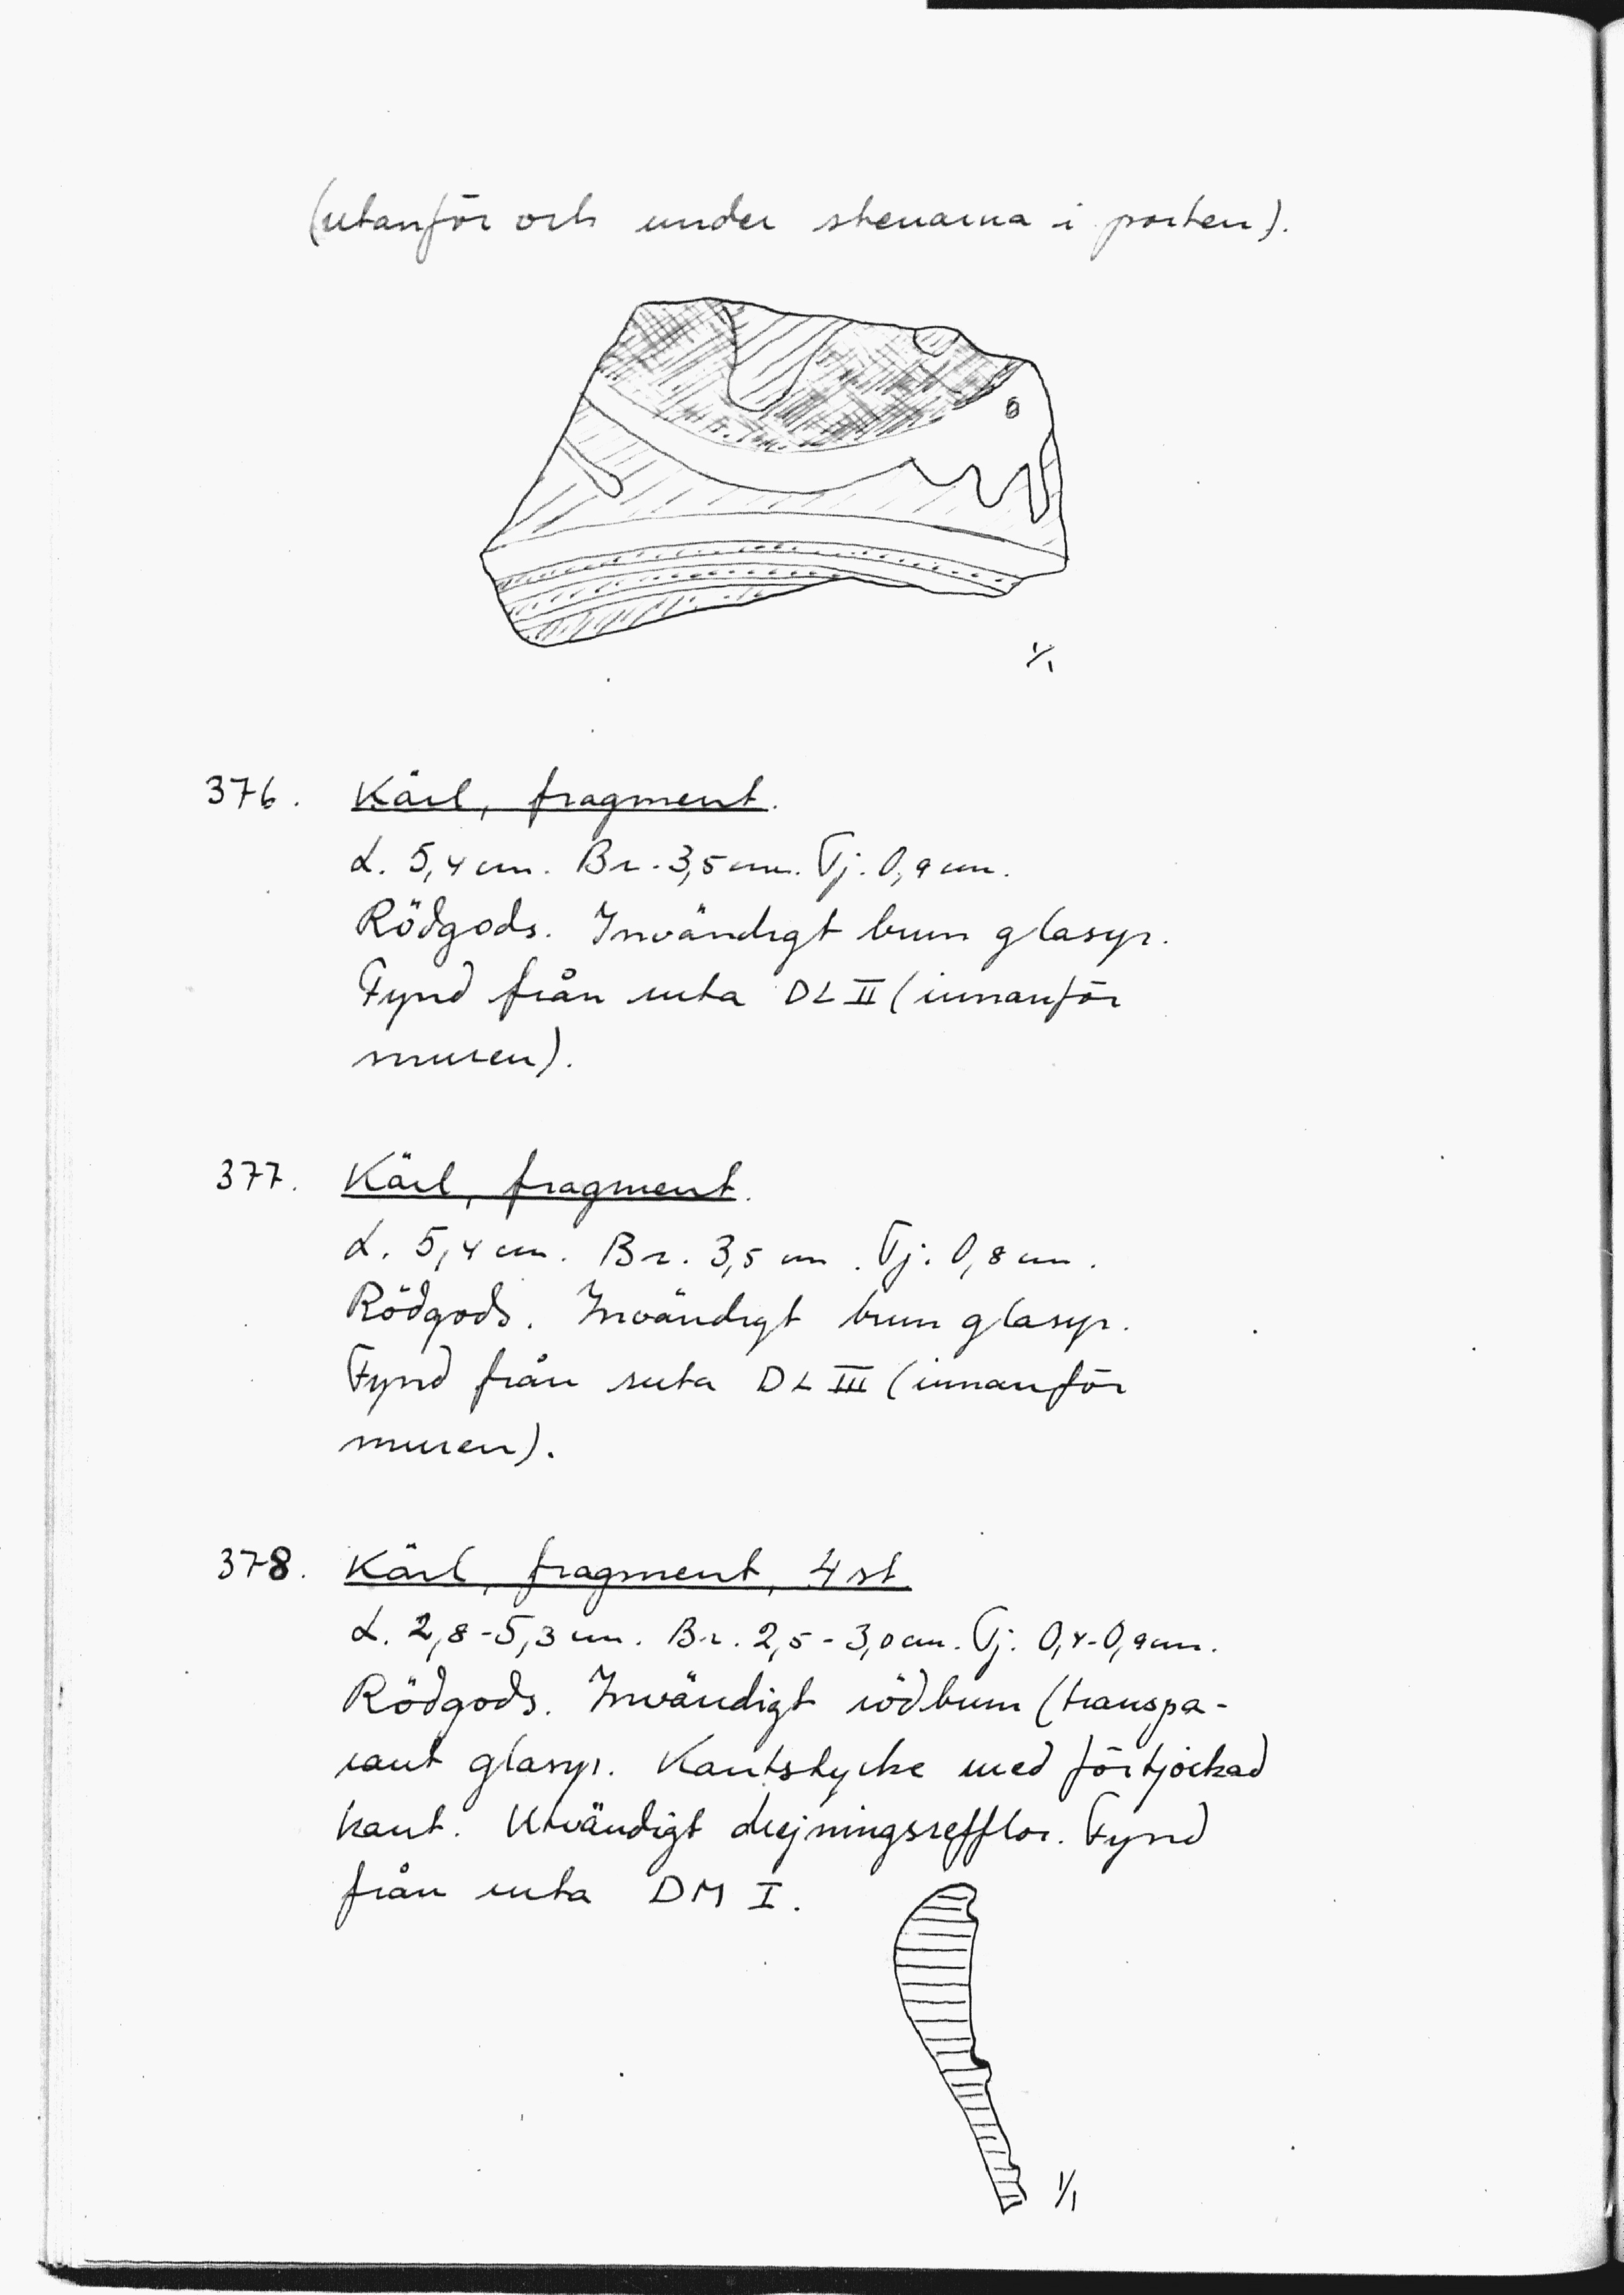 (utanför och under stenarna i porten).
1/1
376. Kärl, fragment.
L. 5,4 cm. Br. 3,5 cm. Tj. 0,9 cm.
Rödgods. Invändigt brun glasyr.
Fynd från ruta DL II (innanför
muren).
377. Kärl, fragment.
L. 5,4 cm. Br. 3,5 cm. Tj. 0,8 cm.
Rödgods. Invändigt brun glasyr.
Fynd från ruta DL III (innanför
muren).
378. Kärl, fragment, 4 st.
L. 2,8-5,3 cm. Br. 2,5-3,0 cm. Tj. 0,4-0,9 cm.
Rödgods. Invändigt rödbrun (transpa-
rant glasyr. Kantstycke med förtjockad
kant. Utvändigt drejningsrefflor. Fynd
från ruta DM I.
1/1